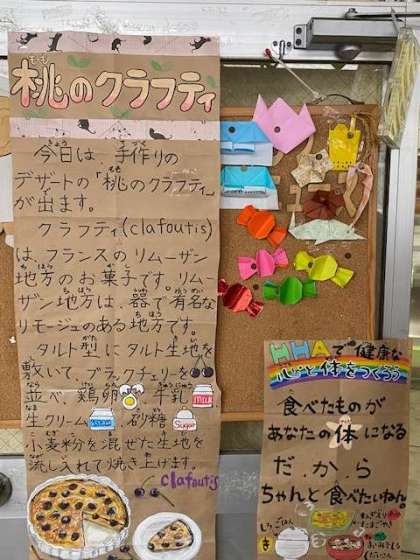 桃のクラフティ
今日は、手作りの
デザートの「桃のクラフティ」
が出ます。
クラフティ(clafoutis)
は、フランスのリムーザン
地方のお菓子です。リムー
ザン地方は、器で有名な
リモージュのある地方です。
タルト型にタルト生地を
敷いて、ブラックチェリーを
並べ、鶏卵、牛乳、
生クリーム、砂糖、
小麦粉を混ぜた生地を
流し入れて焼き上げます。
clafoutis
MILK
Sugar
HHAで健康な
心と体をつくろう
食べたものが
あなたの体になる
だ・か・ら
ちゃんと食べたいねん。
しろごはん